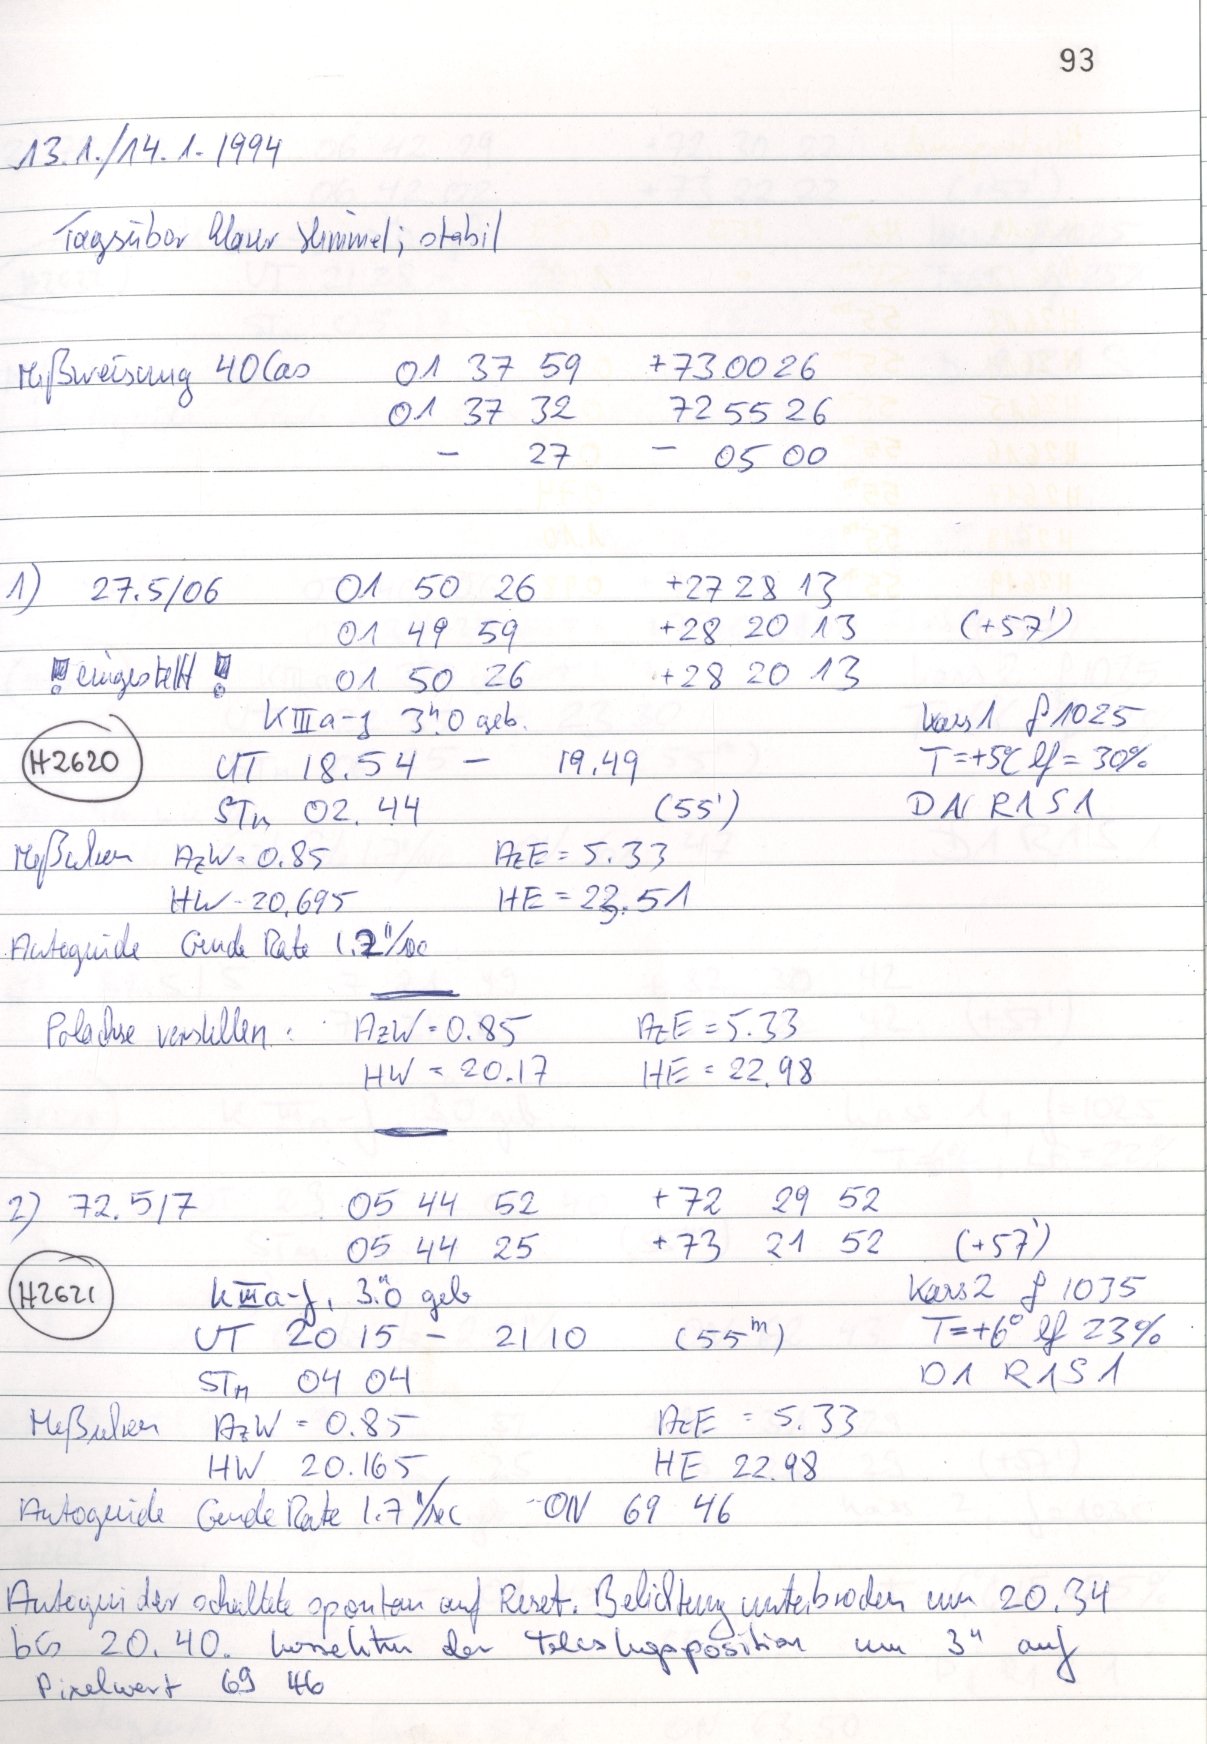 93
13.1./14.1.1994
Tagsüber klarer Himmel; stabil
Mißweisung 40Cas 01 37 59 +73 00 26
01 37 32 72 55 26
- 27 - 05 00
1) 27.5/06 01 50 26 +27 28 13
01 49 59 +28 20 13 (+57')
!! eingestellt !! 01 50 26 +28 20 13
KIIIa-J 3.ʰ0 geb. Kass1 f 1025
H2620 UT 18.54 - 19.49 T=+5°C lf = 30%
STM 02.44 (55') DN R1 S1
Meßuhren AzW = 0.85 AzE = 5.33
HW - 20.695 HE = 23.51
Autoguide Guide Rate 1.7"/sec
Polachse verstellen: AzW = 0.85 AzE = 5.33
HW = 20.17 HE = 22.98
2) 72.5/7 05 44 52 +72 29 52
05 44 25 +73 21 52 (+57')
H2621 KIIIa-J, 3.ʰ0 geb Kass2 f 1035
UT 20 15 - 21 10 (55ᵐ) T=+6° lf 23%
STM 04 04 D1 R1 S1
Meßuhren AzW = 0.85 AzE = 5.33
HW 20.165 HE 22.98
Autoguide Guide Rate 1.7"/sec ON 69 46
Autoguider schaltete spontan auf Reset. Belichtung unterbrochen um 20.34
bis 20.40. Korrektur der Teleskopposition um 3" auf
Pixelwert 69 46